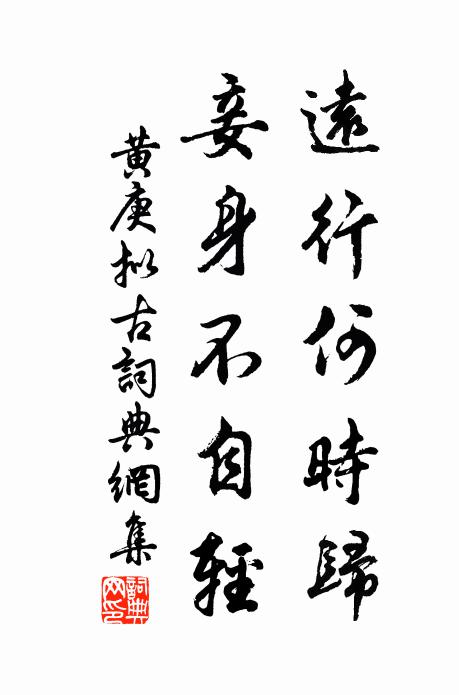 遠行何時歸
妾身不自輕
黃庚拟古詞典網集
詞典网印